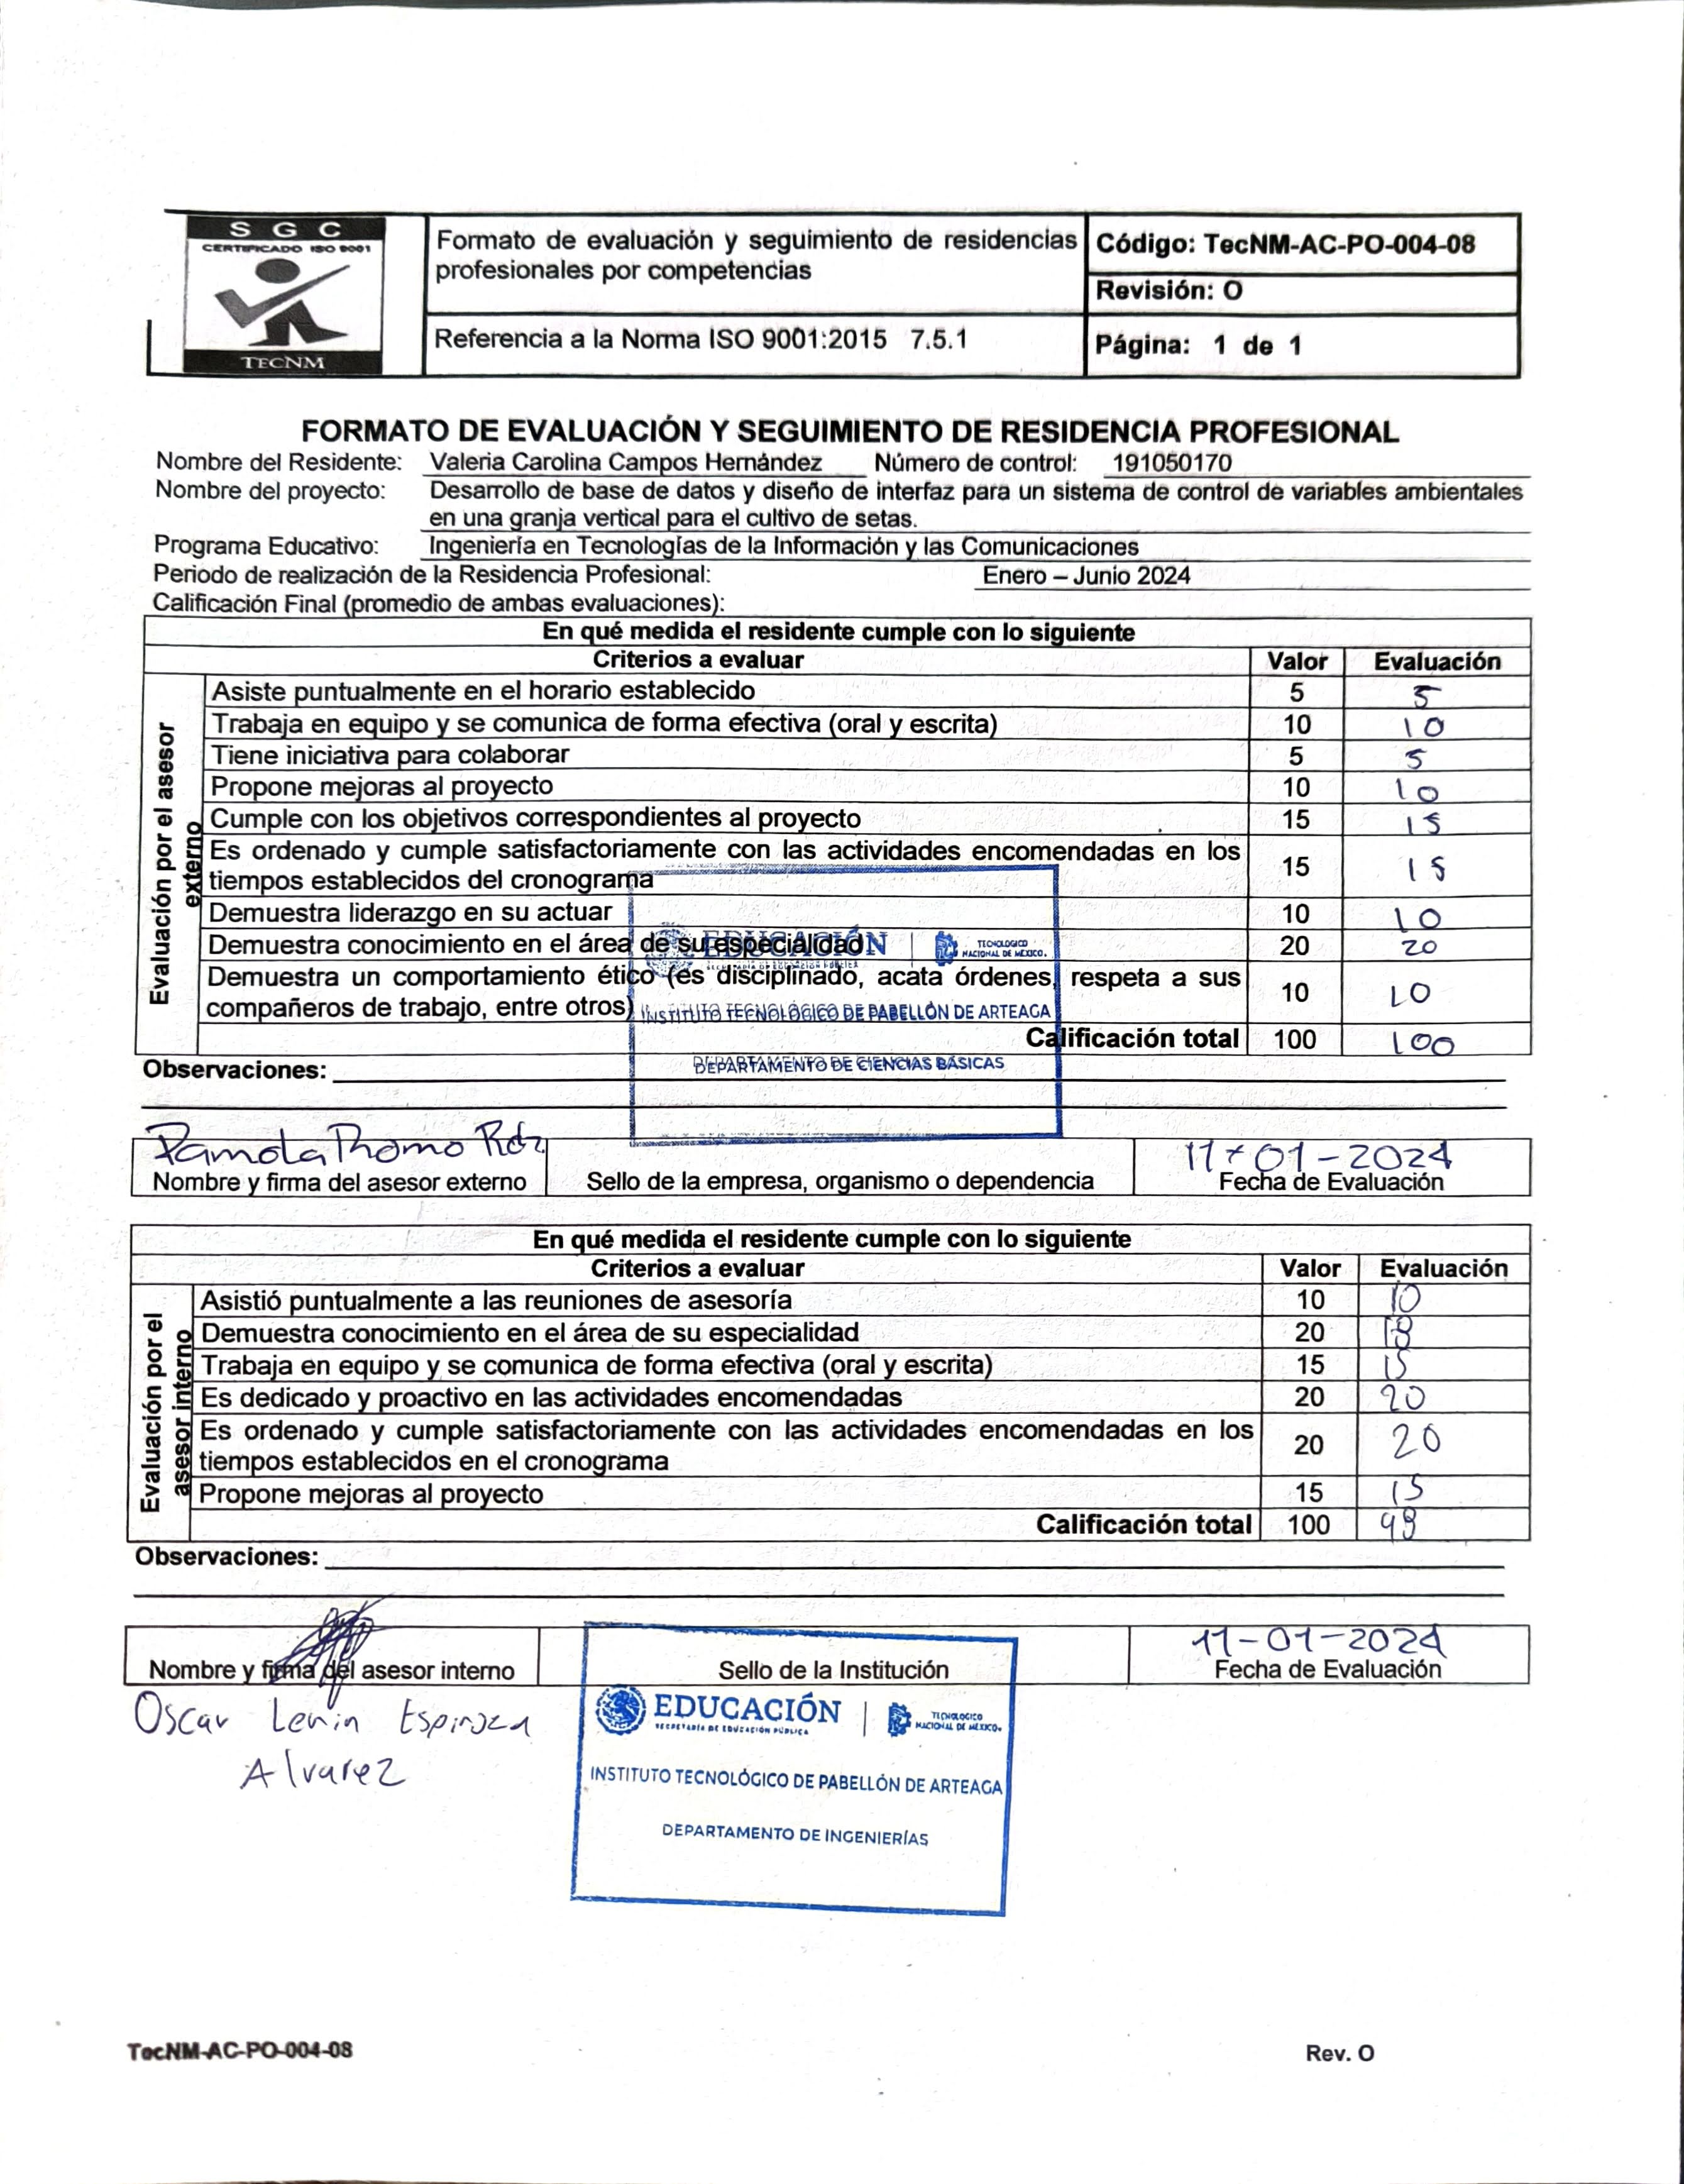 S G C
CERTIFICADO ISO 9001
TECNM
Formato de evaluación y seguimiento de residencias
profesionales por competencias
Referencia a la Norma ISO 9001:2015 7.5.1
Código: TecNM-AC-PO-004-08
Revisión: O
Página: 1 de 1
FORMATO DE EVALUACIÓN Y SEGUIMIENTO DE RESIDENCIA PROFESIONAL
Nombre del Residente: Valeria Carolina Campos Hernández Número de control: 191050170
Nombre del proyecto: Desarrollo de base de datos y diseño de interfaz para un sistema de control de variables ambientales
en una granja vertical para el cultivo de setas.
Programa Educativo: Ingeniería en Tecnologías de la Información y las Comunicaciones
Periodo de realización de la Residencia Profesional: Enero – Junio 2024
Calificación Final (promedio de ambas evaluaciones):
En qué medida el residente cumple con lo siguiente
Criterios a evaluar Valor Evaluación
Evaluación por el asesor
externo
Asiste puntualmente en el horario establecido 5 5
Trabaja en equipo y se comunica de forma efectiva (oral y escrita) 10 10
Tiene iniciativa para colaborar 5 5
Propone mejoras al proyecto 10 10
Cumple con los objetivos correspondientes al proyecto 15 15
Es ordenado y cumple satisfactoriamente con las actividades encomendadas en los
tiempos establecidos del cronograma 15 15
Demuestra liderazgo en su actuar 10 10
Demuestra conocimiento en el área de su especialidad 20 20
Demuestra un comportamiento ético (es disciplinado, acata órdenes, respeta a sus
compañeros de trabajo, entre otros) 10 10
Calificación total 100 100
EDUCACIÓN
SECRETARÍA DE EDUCACIÓN PÚBLICA
TECNOLÓGICO
NACIONAL DE MÉXICO.
INSTITUTO TECNOLÓGICO DE PABELLÓN DE ARTEAGA
DEPARTAMENTO DE CIENCIAS BÁSICAS
Observaciones:
Pamela Romo Rdz 11-01-2024
Nombre y firma del asesor externo Sello de la empresa, organismo o dependencia Fecha de Evaluación
En qué medida el residente cumple con lo siguiente
Criterios a evaluar Valor Evaluación
Evaluación por el
asesor interno
Asistió puntualmente a las reuniones de asesoría 10 10
Demuestra conocimiento en el área de su especialidad 20
Trabaja en equipo y se comunica de forma efectiva (oral y escrita) 15 15
Es dedicado y proactivo en las actividades encomendadas 20 20
Es ordenado y cumple satisfactoriamente con las actividades encomendadas en los
tiempos establecidos en el cronograma 20 20
Propone mejoras al proyecto 15 15
Calificación total 100 98
Observaciones:
11-01-2024
Nombre y firma del asesor interno Sello de la Institución Fecha de Evaluación
Oscar Lenin Espinoza
Alvarez
EDUCACIÓN
SECRETARÍA DE EDUCACIÓN PÚBLICA
TECNOLÓGICO
NACIONAL DE MÉXICO.
INSTITUTO TECNOLÓGICO DE PABELLÓN DE ARTEAGA
DEPARTAMENTO DE INGENIERÍAS
TecNM-AC-PO-004-08 Rev. O